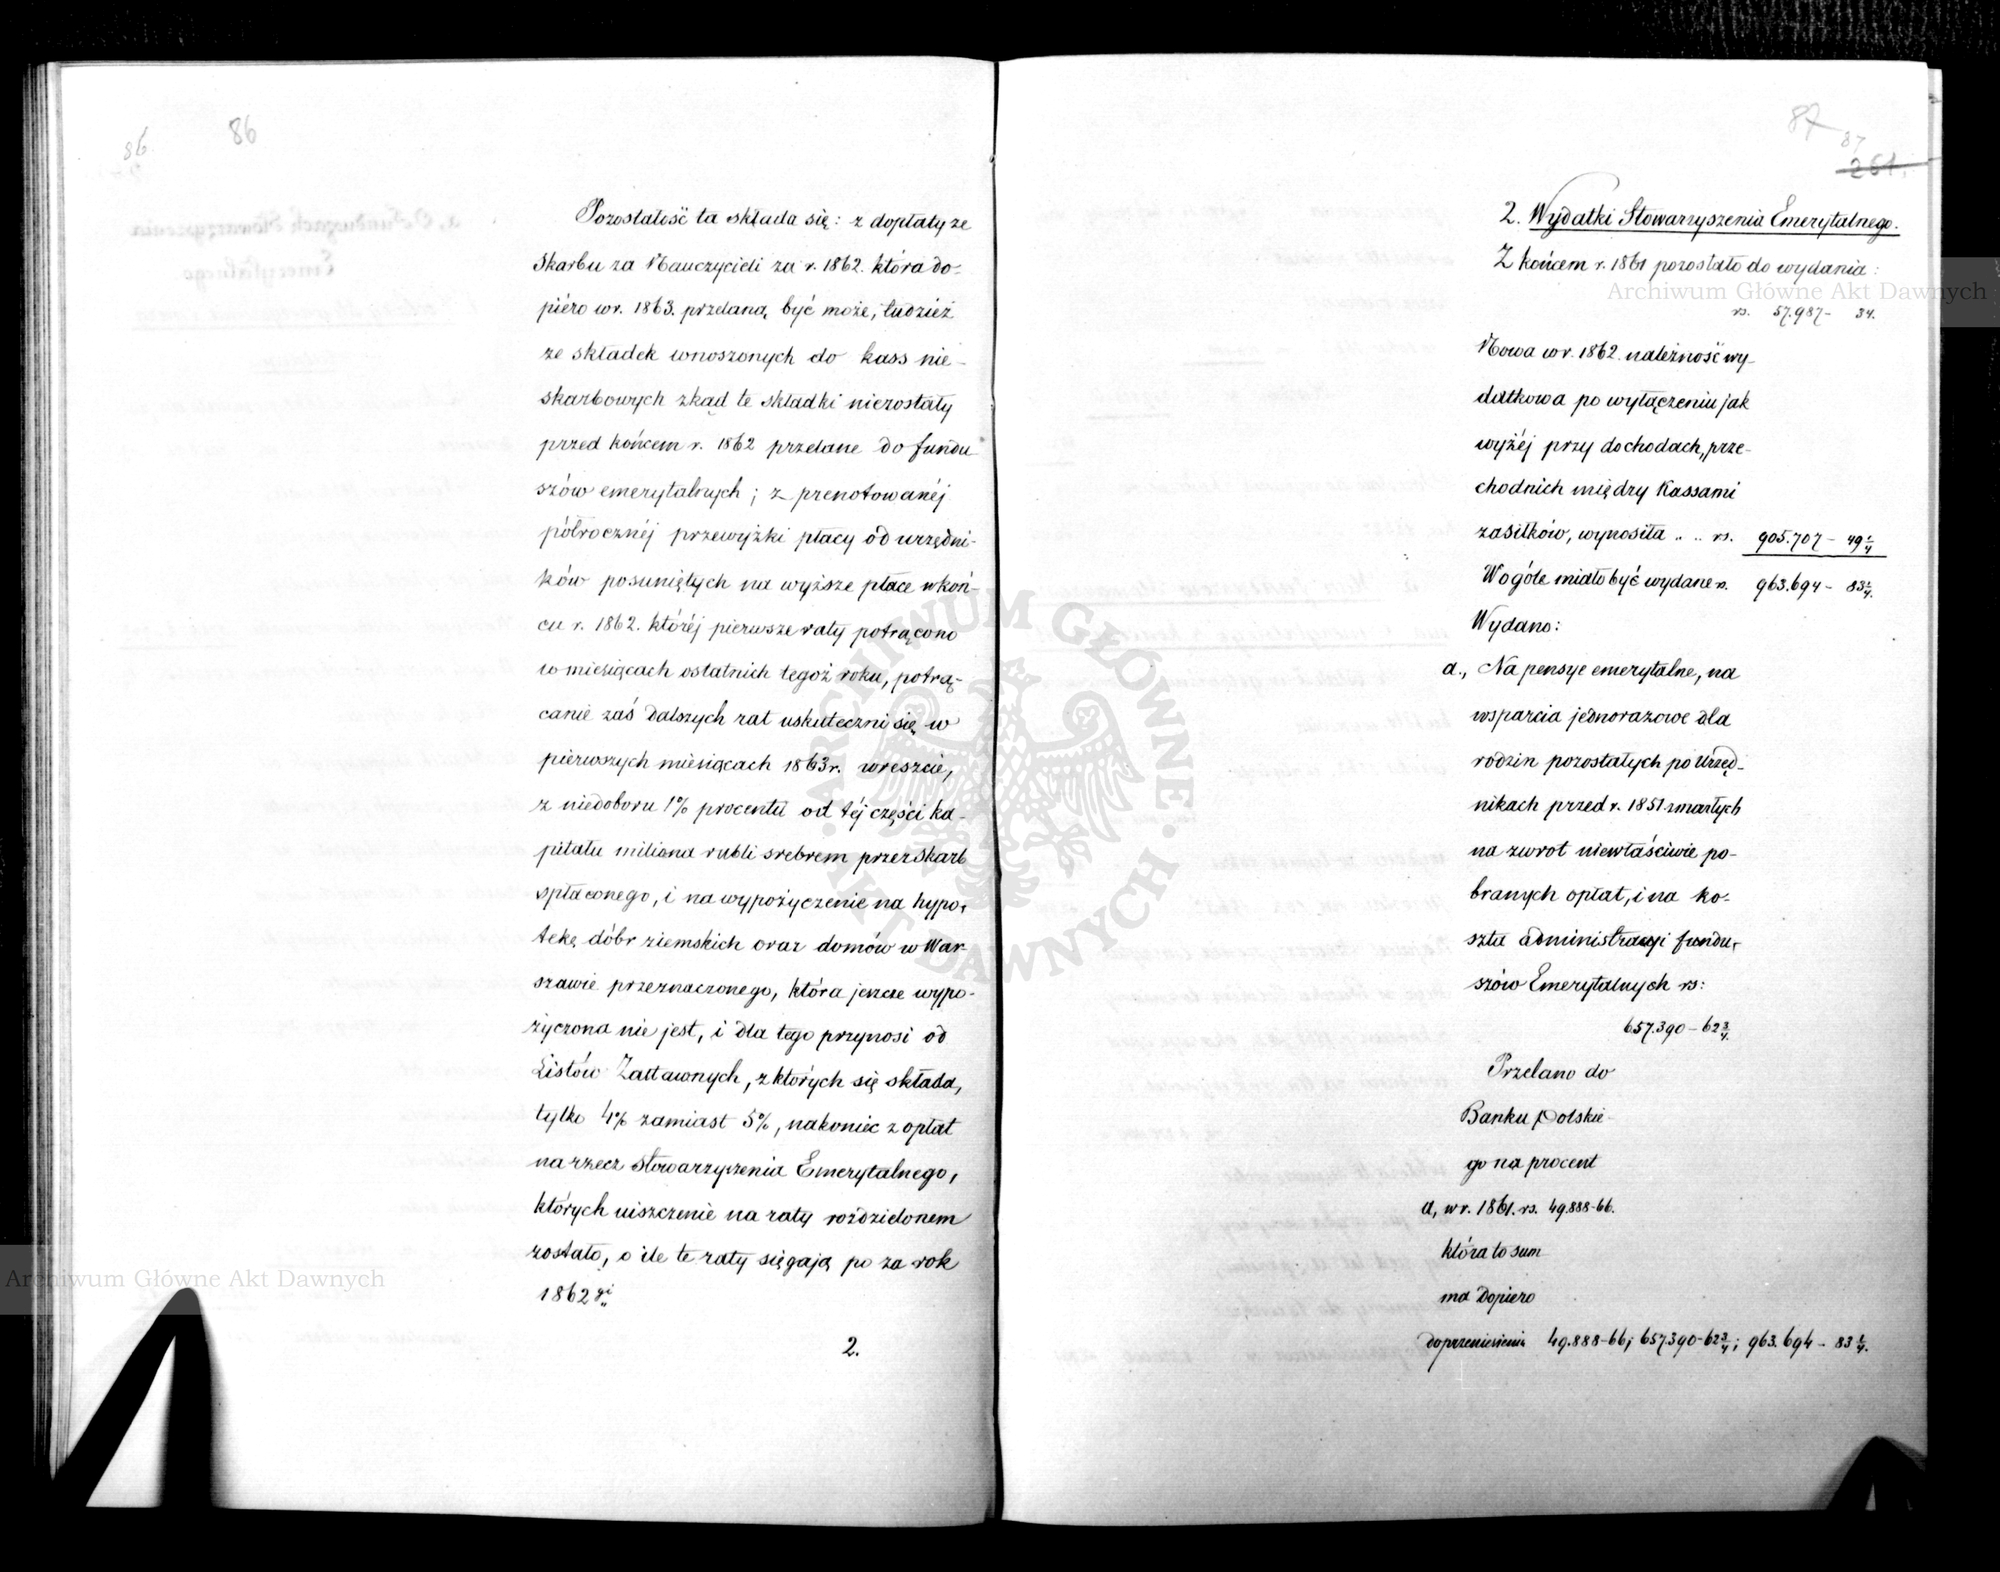 86
86
Pozostałość ta składa się: z dopłaty ze
Skarbu za Nauczycieli za r. 1862. która do-
piéro w r. 1863. przelaną być może, tudzież
ze składek wnoszonych do kass nie-
skarbowych zkąd te składki niezostały
przed końcem r. 1862 przelane do fundu
szów emerytalnych; z prenotowanéj
półrocznéj przewyżki płacy od urzędni-
ków posuniętych na wyższe płace w koń-
cu r. 1862. któréj pierwsze raty potrącono
w miesiącach ostatnich tegoż roku, potrą-
canie zaś dalszych rat uskuteczni się w
pierwszych miesiącach 1863 r. wreszcie,
z niedoboru 1% procentu od téj części ka-
pitału miliona rubli srebrem przez Skarb
spłaconego, i na wypożyczenie na hypo-
tekę dóbr ziemskich oraz domów w War-
szawie przeznaczonego, która jeszcze wypo-
życzona nie jest, i dla tego przynosi od
Listów Zastawnych, z których się składa,
tylko 4% zamiast 5%, nakoniec z opłat
na rzecz Stowarzyszenia Emerytalnego,
których uiszczenie na raty rozdzielonem
zostało, o ile te raty sięgają po za rok
1862 gi
2.
87
87
261.
2. Wydatki Stowarzyszenia Emerytalnego.
Z końcem r. 1861 pozostało do wydania:
rs. 57.987- 34.
Nowa w r. 1862. należność wy-
datkowa po wyłączeniu jak
wyżéj przy dochodach, prze-
chodnich między Kassami
zasiłków, wynosiła .. .. rs. 905.707- 49 1/4
Wogóle miało być wydane rs. 963.694- 83 1/4.
Wydano:
a., Na pensye emerytalne, na
wsparcia jednorazowe dla
rodzin pozostałych po Urzęd-
nikach przed r. 1851 zmarłych
na zwrot niewłaściwie po-
branych opłat, i na ko-
szta administracyi fundu-
szów Emerytalnych rs:
657.390-62 3/4.
Przelano do
Banku Polskie-
go na procent
a, w r. 1861. rs. 49.888-66.
która to sum
ma dopiero
do przeniesienia 49.888-66; 657.390-62 3/4; 963.694- 83 1/4.
Archiwum Główne Akt Dawnych
Archiwum Główne Akt Dawnych
ARCHIWUM GŁÓWNE
AKT DAWNYCH